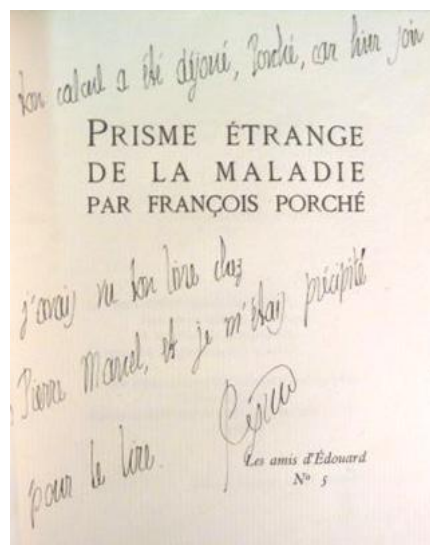 Ton calcul a été déjoué, Porché, car hier soir
PRISME ÉTRANGE
DE LA MALADIE
PAR FRANÇOIS PORCHÉ
j'avais vu ton livre chez
Pierre Marcel, et je m'étais précipité
pour le lire.
Les amis d'Édouard
N° 5